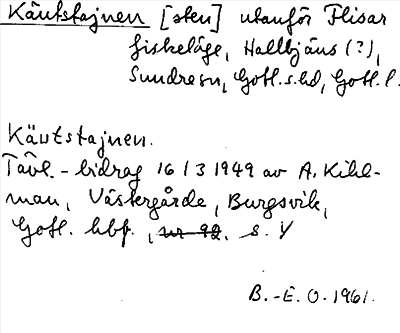 Käutstajnen [sten] utanför Flisar
fiskeläge, Hallbjäns (?),
Sundresn, Gotl.s.hd, Gotl.l.
Käutstajnen.
Tävl.-bidrag 16/3 1949 av A. Kihl-
man, Västergårde, Burgsvik,
Gotl. hbf., nr 92. s. 4
B.-E. O. 1961.